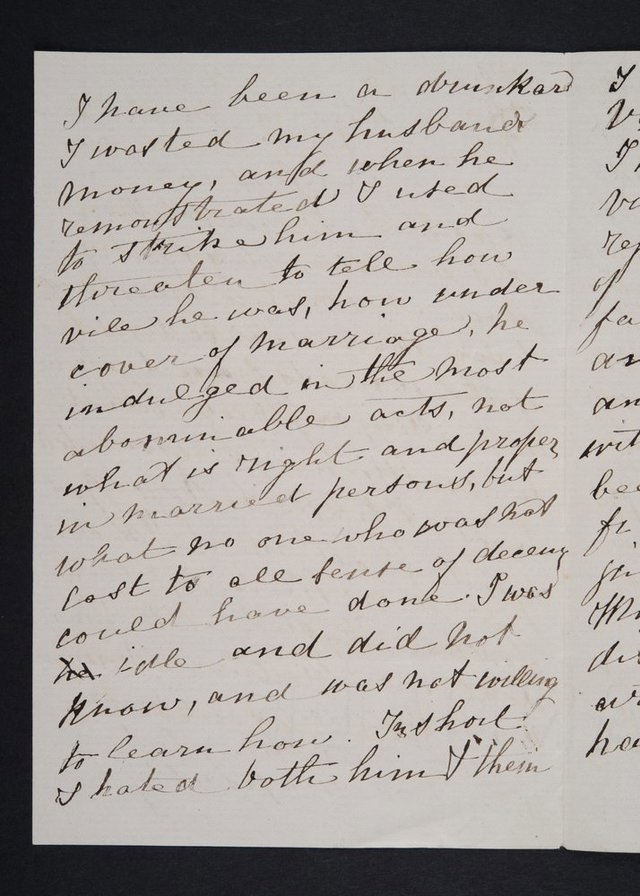 I have been a drunkard
I wasted my husbands
money, and when he
remonstrated I used
to strike him and
threaten to tell how
vile he was, how under
cover of marriage, he
indulged in the most
abominable acts, not
what is right and proper
in married persons, but
what no one who was not
lost to all sense of decency
could have done. I was
idle and did not
know, and was not willing
to learn how. In short
I hated both him & them
I
I
of
fa
an
an
wit
bee
fr